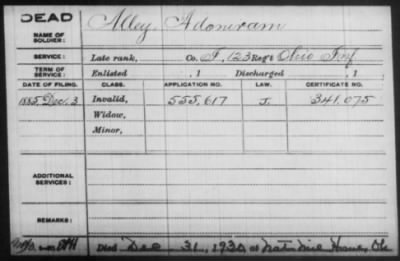 DEAD
NAME OF SOLDIER: Alley, Adoniram
SERVICE: Late rank, Co. F, 123 Reg't Ohio Inf
TERM OF SERVICE: Enlisted , 1 Discharged , 1
DATE OF FILING. CLASS. APPLICATION NO. LAW. CERTIFICATE NO.
1885 Dec. 3 Invalid, 555,617 J. 341,075
Widow,
Minor,
ADDITIONAL SERVICES:
REMARKS:
Died Dec 31, 1930 at Nat. Mil. Home, Oh